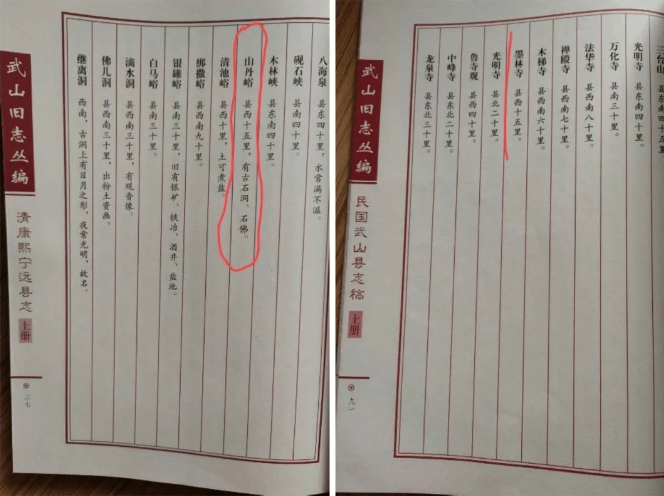 八海泉 县东四十里,水常满不溢。
砚石峡 县南四十里。
木林峡 县东南四十里。
山丹峪 县西十五里,有古石洞、石佛。
清池峪 县西十里,土可煮盐。
绑撒峪 县西南九十里。
银罐峪 县南三十里,旧有银矿、铁冶、酒井、盐池。
白马峪 县南三十里。
滴水洞 县西三十里,有观音像。
佛儿洞 县西南三十里,出粉土资画。
继离洞 西南,古洞上有日月之形,夜常光明,故名。
武山旧志丛编
清康熙宁远县志
上册
二七
三台山
光明寺 县东南四十里。
万化寺 县南三十里。
法华寺 县西南八十里。
禅殿寺 县西南七十里。
木梯寺 县西南六十里。
墨林寺 县西十五里。
光明寺 县北二十里。
鲁寺观 县西南四十里。
中峰寺 县东北二十里。
龙泉寺 县东北三十里。
武山旧志丛编
民国武山县志稿
上册
九一